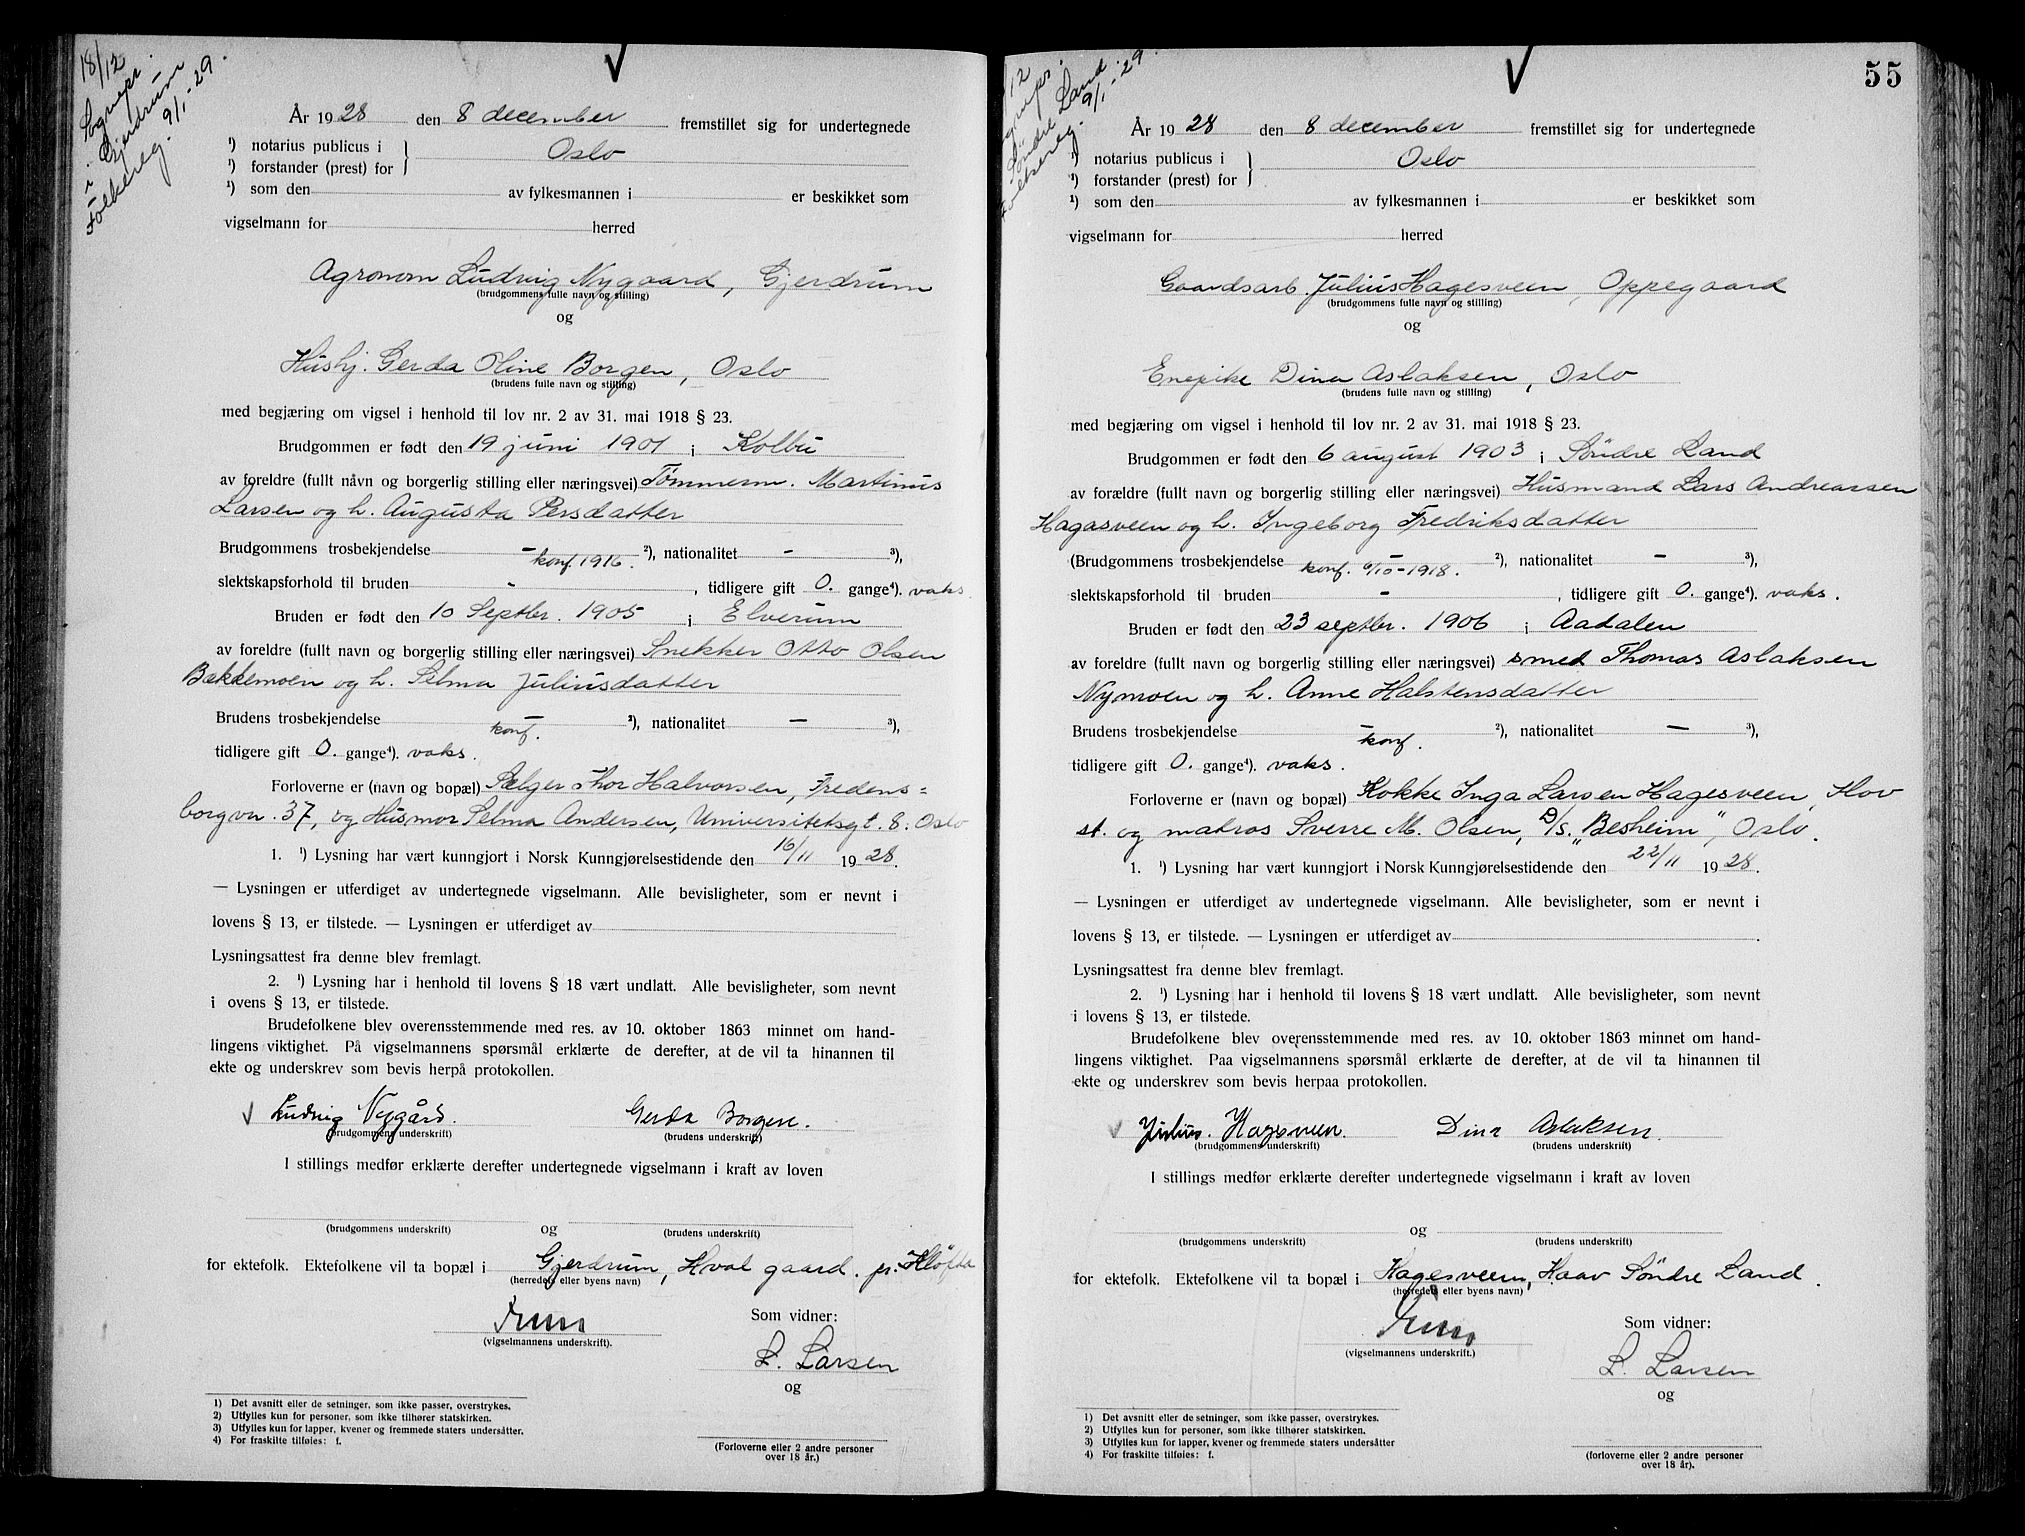 18/12
Sognepr.
i Gjerdrum
Folkereg. 9/1-29.
År 1928 den 8 december fremstillet sig for undertegnede
¹) notarius publicus i
¹) forstander (prest) for } Oslo
¹) som den av fylkesmannen i er beskikket som
vigselmann for herred
Agronom Ludvig Nygaard, Gjerdrum
(brudgommens fulle navn og stilling)
og
Hushj. Gerda Oline Borgen, Oslo
(brudens fulle navn og stilling)
med begjæring om vigsel i henhold til lov nr. 2 av 31. mai 1918 § 23.
Brudgommen er født den 19 juni 1901 i Kolbu
av foreldre (fullt nåvn og borgerlig stilling eller næringsvei) Tømmerm. Martinus
Larsen og h. Augusta Persdatter
Brudgommens trosbekjendelse - ²), nationalitet - ³),
konf. 1916.
slektskapsforhold til bruden - , tidligere gift 0. gange⁴). vaks.
Bruden er født den 10 Septbr. 1905 i Elverum
av foreldre (fullt navn og borgerlig stilling eller næringsvei) Snekker Otto Olsen
Bakkemoen og h. Selma Juliusdatter
Brudens trosbekjendelse - ²), nationalitet - ³),
konf.
tidligere gift 0. gange⁴). vaks.
Forloverne er (navn og bopæl) Sælger Thor Halvorsen, Fredens=
borgvn. 37, og Husmor Selma Andersen, Universitetsgt. 8. Oslo
1. ¹) Lysning har vært kunngjort i Norsk Kunngjørelsestidende den 16/11 1928.
— Lysningen er utferdiget av undertegnede vigselmann. Alle bevisligheter, som er nevnt i
lovens § 13, er tilstede. — Lysningen er utferdiget av
Lysningsattest fra denne blev fremlagt.
2. ¹) Lysning har i henhold til lovens § 18 vært undlatt. Alle bevisligheter, som nevnt
i ovens § 13, er tilstede.
Brudefolkene blev overensstemmende med res. av 10. oktober 1863 minnet om hand-
lingens viktighet. På vigselmannens spørsmål erklærte de derefter, at de vil ta hinannen til
ekte og underskrev som bevis herpå protokollen.
Ludvig Nygård. Gerda Borgen.
(brudgommens underskrift) (brudens underskrift)
I stillings medfør erklærte derefter undertegnede vigselmann i kraft av loven
og
(brudgommens underskrift) (brudens underskrift)
for ektefolk. Ektefolkene vil ta bopæl i Gjerdrum, Hval gaard. pr. Kløfta
(herredets eller byens navn)
Som vidner:
(vigselmannens underskrift).
L. Larsen
og
(Forloverne eller 2 andre personer
over 18 år.)
1) Det avsnitt eller de setninger, som ikke passer, overstrykes.
2) Utfylles kun for personer, som ikke tilhører statskirken.
3) Utfylles kun for lapper, kvener og fremmede staters undersåtter.
4) For fraskilte tilføies: f.
55
/12
Søndre Land
9/1-29
År 1928 den 8 december fremstillet sig for undertegnede
¹) notarius publicus i
¹) forstander (prest) for } Oslo
¹) som den av fylkesmannen i er beskikket som
vigselmann for herred
Gaardsarb. Julius Hagesveen, Oppegaard
(brudgommens fulle navn og stilling)
og
Enepike Dina Aslaksen, Oslo
(brudens fulle navn og stilling)
med begjæring om vigsel i henhold til lov nr. 2 av 31. mai 1918 § 23.
Brudgommen er født den 6 august 1903 i Søndre Land
av forældre (fullt navn og borgerlig stilling eller næringsvei) Husmand Lars Andreassen
Hagasveen og h. Ingeborg Fredriksdatter
(Brudgommens trosbekjendelse - ²), nationalitet - ³),
konf. 6/10-1918.
slektskapsforhold til bruden - , tidligere gift 0. gange⁴). vaks.
Bruden er født den 23 septbr. 1906 i Aadalen
av foreldre (fullt navn og borgerlig stilling eller næringsvei) smed Thomas Aslaksen
Nymoen og h. Anne Halstensdatter
Brudens trosbekjendelse - ²), nationalitet - ³),
konf.
tidligere gift 0. gange⁴). vaks.
Forloverne er (navn og bopæl) Kokke Inga Larsen Hagesveen, Hov
st. og matros Sverre M. Olsen, D/S. „Besheim", Oslo.
1. ¹) Lysning har vært kunngjort i Norsk Kunngjørelsestidende den 22/11 1928.
— Lysningen er utferdiget av undertegnede vigselmann. Alle bevisligheter, som er nevnt i
lovens § 13, er tilstede. — Lysningen er utferdiget av .
Lysningsattest fra denne blev fremlagt.
2. ¹) Lysning har i henhold til lovens § 18 vært undlatt. Alle bevisligheter, som nevnt
i lovens § 13, er tilstede.
Brudefolkene blev overensstemmende med res. av 10. oktober 1863 minnet om hand-
lingens viktighet. Paa vigselmannens spørsmål erklærte de derefter, at de vil ta hinannen til
ekte og underskrev som bevis herpaa protokollen.
Julius. Hagesveen. Dina Aslaksen.
(brudgommens underskrift) (brudens underskrift)
I stillings medfør erklærte derefter undertegnede vigselmann i kraft av loven
og
(brudgommens underskrift) (brudens underskrift)
for ektefolk. Ektefolkene vil ta bopæl i Hagesveen, Haav Søndre Land.
(herredets eller byens navn)
Som vidner:
(vigselmannens underskrift.)
L. Larsen
og
(forloverne eller 2 andre personer
over 18 år).
1) Det avsnitt eller de setninger, som ikke passer, overstrykes.
2) Utfylles kun for personer, som ikke tilhører statskirken.
3) Utfylles kun for lapper, kvener og fremmede staters undersåtter
4) For fraskilte tilføies: f.